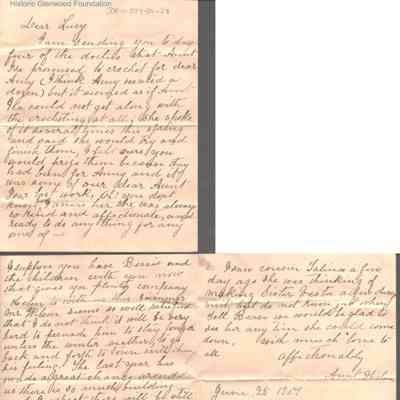 Historic Glenwood Foundation
Dear Lucy
I am sending you to day
four of the doilies that Aunt
Ida promised to crochet for dear
Amy (I think Amy wanted a
dozen) but it seemed as if Aunt
Ida could not get along with
the crocheting at all, She spoke
of it several times this spring
and said she would try and
finish them, I felt sure you
would prize them because they
had been for Amy and it
was some of our dear Aunt
work, Oh you dont
know I miss her she was always
so kind and affectionate, and
ready to do any thing for any
one of
I suppose you have Bessie and
the children with you now
that gives you plenty company
Helen is with us
Mr Wilson seems so well satisfied
that I do not think it will be very
hard to persuade him to stay
unless the winter
back and forth to town
his feeling. The last year has
made a great change around
us there is so much building
will be still
I saw cousin Salina a few
day ago she was thinking of
making Sister Hester a few days
visit but do not know just when
Tell Bessie we would be glad to
see her any time she could come
down, with much love to
all affectionately
Aunt
June 25 1907